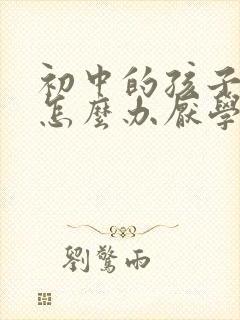 初中的孩子
怎麼办厭學
劉驚雨